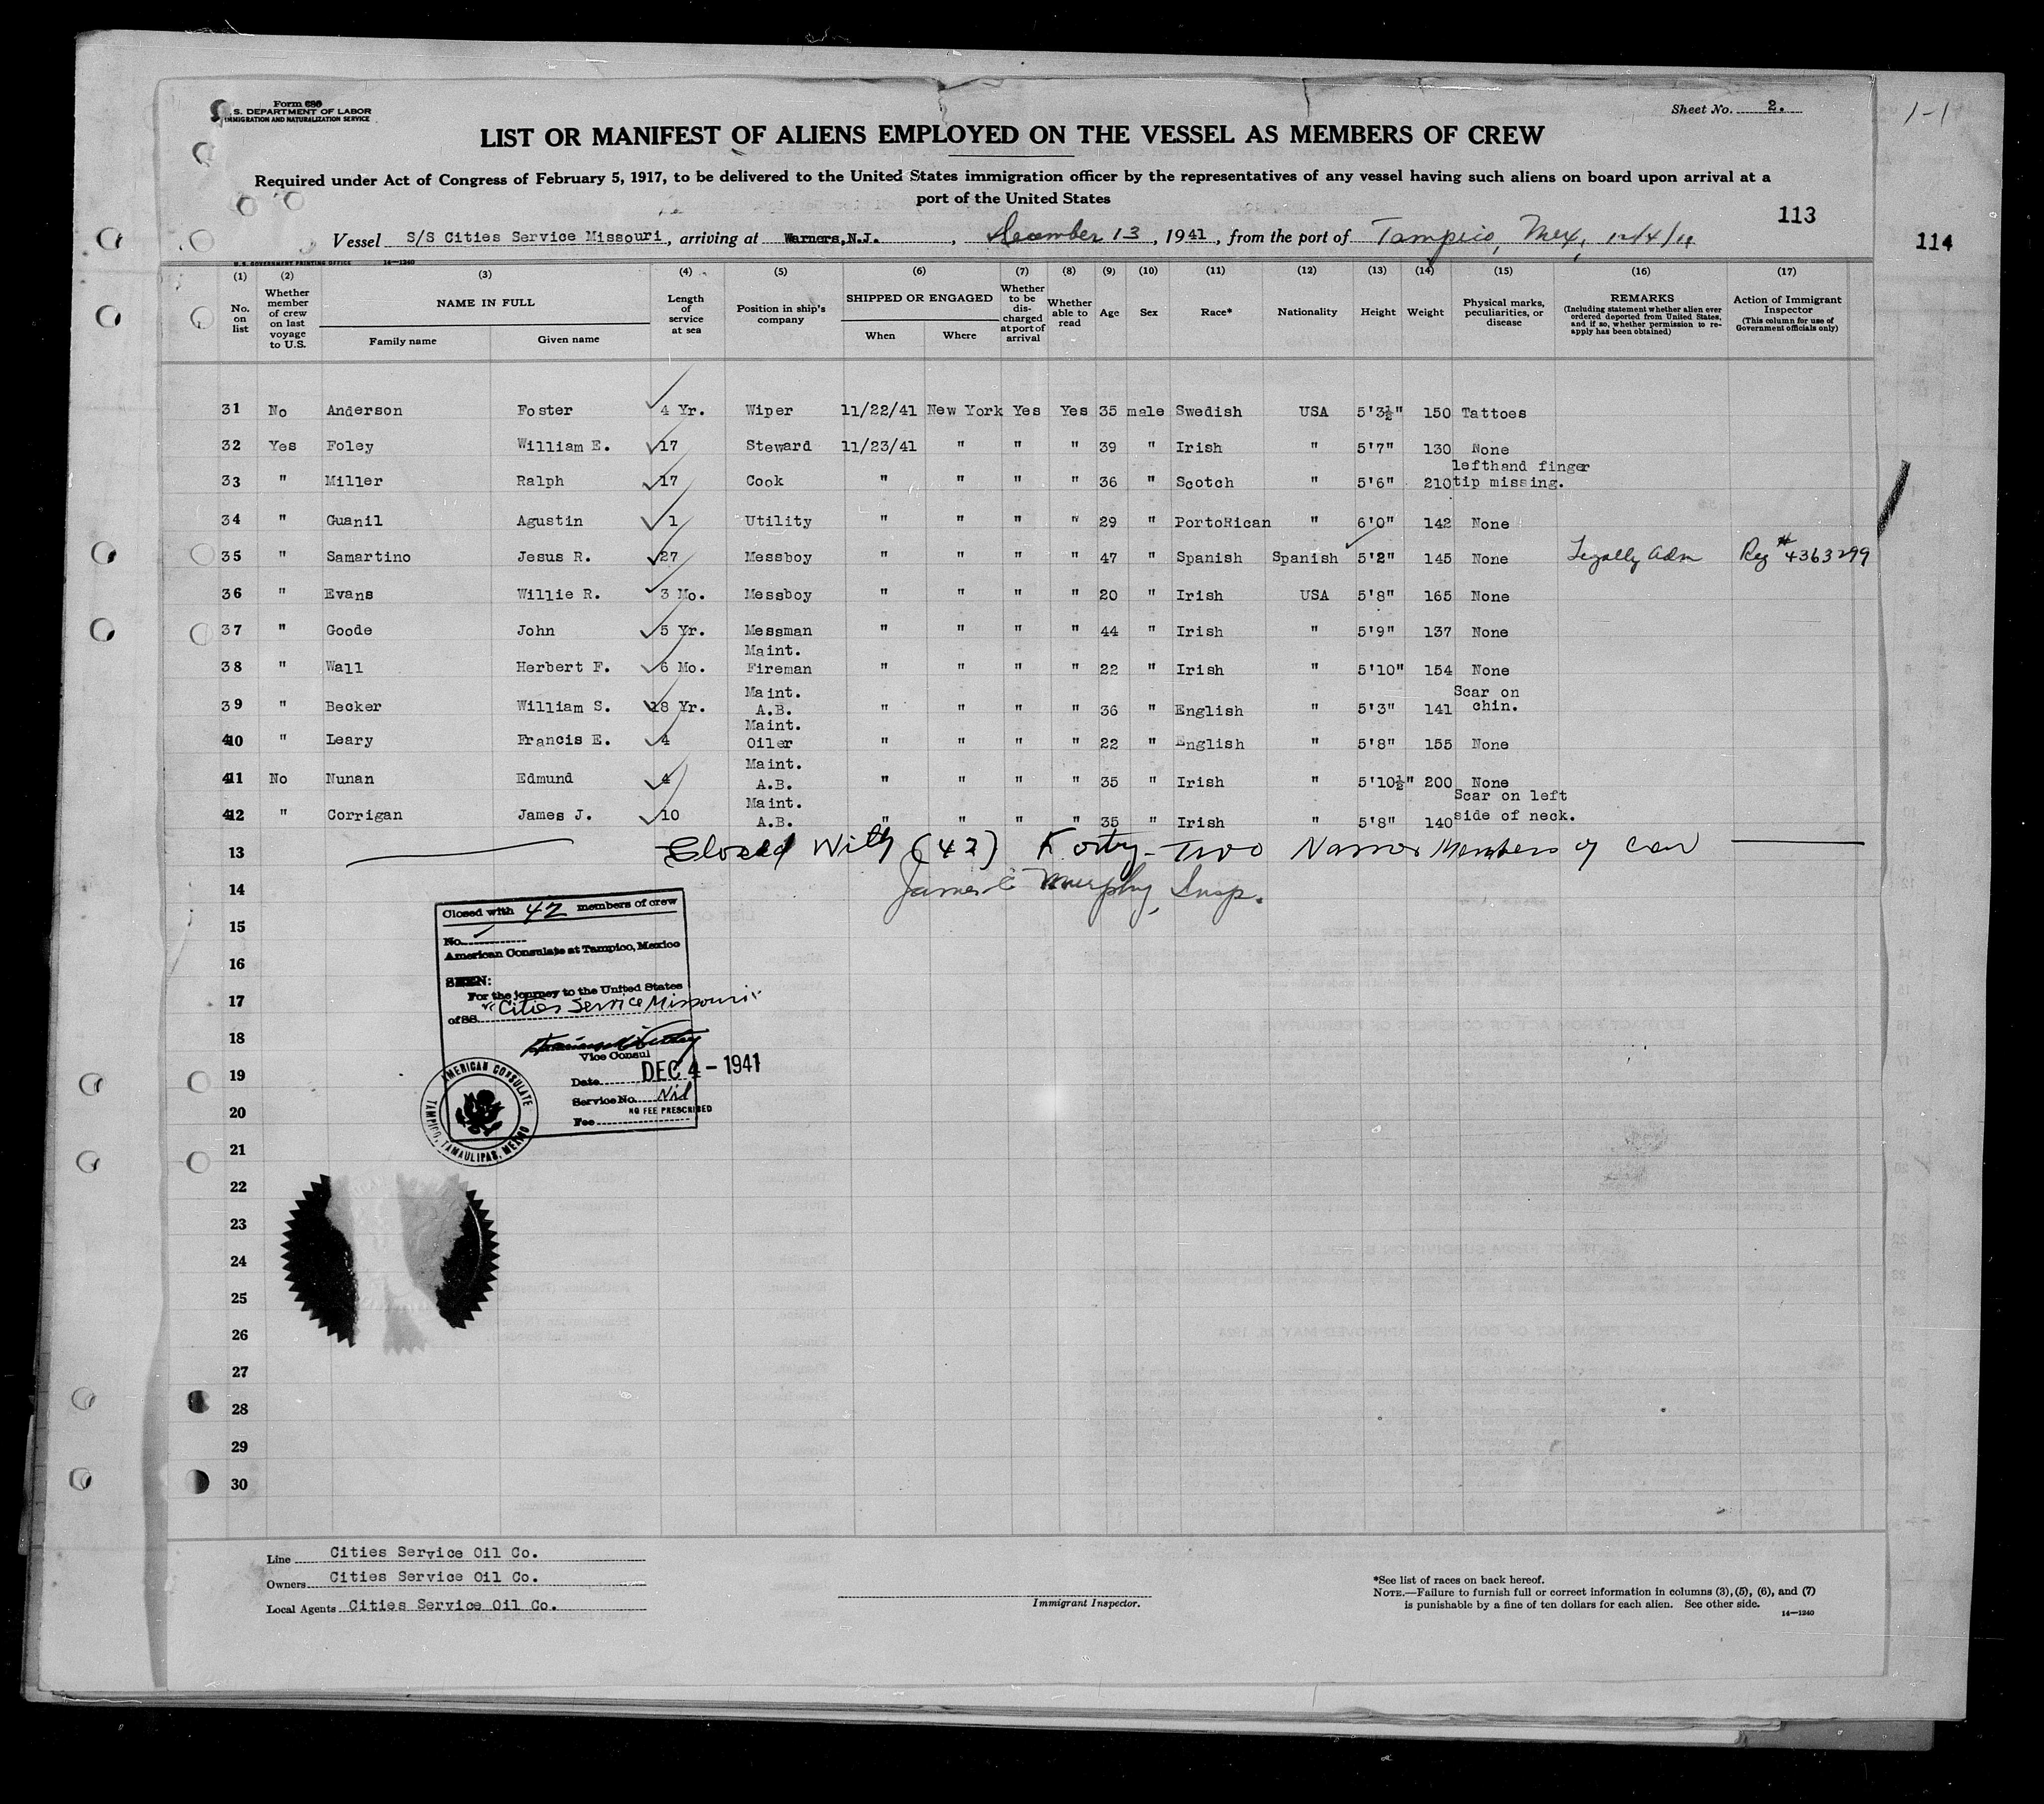 Form 680
U. S. DEPARTMENT OF LABOR
IMMIGRATION AND NATURALIZATION SERVICE
Sheet No. 2.
1-1
LIST OR MANIFEST OF ALIENS EMPLOYED ON THE VESSEL AS MEMBERS OF CREW
Required under Act of Congress of February 5, 1917, to be delivered to the United States immigration officer by the representatives of any vessel having such aliens on board upon arrival at a
port of the United States
113
114
Vessel S/S Cities Service Missouri, arriving at Warners, N.J., December 13, 1941, from the port of Tampico, Mex,
U.S. GOVERNMENT PRINTING OFFICE 14—1240
(1) (2) (3) (4) (5) (6) (7) (8) (9) (10) (11) (12) (13) (14) (15) (16) (17)
No. on list
Whether member of crew on last voyage to U.S.
NAME IN FULL
Family name Given name
Length of service at sea
Position in ship's company
SHIPPED OR ENGAGED
When Where
Whether to be discharged at port of arrival
Whether able to read
Age
Sex
Race*
Nationality
Height
Weight
Physical marks, peculiarities, or disease
REMARKS
(Including statement whether alien ever ordered deported from United States, and if so, whether permission to reapply has been obtained)
Action of Immigrant Inspector
(This column for use of Government officials only)
31 No Anderson Foster 4 Yr. Wiper 11/22/41 New York Yes Yes 35 male Swedish USA 5'3½" 150 Tattoes
32 Yes Foley William E. 17 Steward 11/23/41 " " " 39 " Irish " 5'7" 130 None
33 " Miller Ralph 17 Cook " " " " 36 " Scotch " 5'6" 210 lefthand finger tip missing.
34 " Guanil Agustin 1 Utility " " " " 29 " PortoRican " 6'0" 142 None
35 " Samartino Jesus R. 27 Messboy " " " " 47 " Spanish Spanish 5'2" 145 None Legally Adm Reg # 4363299
36 " Evans Willie R. 3 Mo. Messboy " " " " 20 " Irish USA 5'8" 165 None
37 " Goode John 5 Yr. Messman " " " " 44 " Irish " 5'9" 137 None
38 " Wall Herbert F. 6 Mo. Maint. Fireman " " " " 22 " Irish " 5'10" 154 None
39 " Becker William S. 18 Yr. Maint. A.B. " " " " 36 " English " 5'3" 141 Scar on chin.
40 " Leary Francis E. 4 Maint. Oiler " " " " 22 " English " 5'8" 155 None
41 No Nunan Edmund 4 Maint. A.B. " " " " 35 " Irish " 5'10½" 200 None
42 " Corrigan James J. 10 Maint. A.B. " " " " 35 " Irish " 5'8" 140 Scar on left side of neck.
13 Closed With (42) Forty-Two Members of
14 James C Murphy, Insp.
15
16
17
18
19
20
21
22
23
24
25
26
27
28
29
30
Closed with 42 members of crew
No.
American Consulate at Tampico, Mexico
SEEN:
For the journey to the United States
of SS "Cities Service Missouri"
Vice Consul
Date DEC 4 - 1941
Service No. Nil
NO FEE PRESCRIBED
Fee
AMERICAN CONSULATE
TAMPICO, TAMAULIPAS, MEXICO
Line Cities Service Oil Co.
Owners Cities Service Oil Co.
Local Agents Cities Service Oil Co.
Immigrant Inspector.
*See list of races on back hereof.
NOTE.—Failure to furnish full or correct information in columns (3), (5), (6), and (7)
is punishable by a fine of ten dollars for each alien. See other side.
14—1240